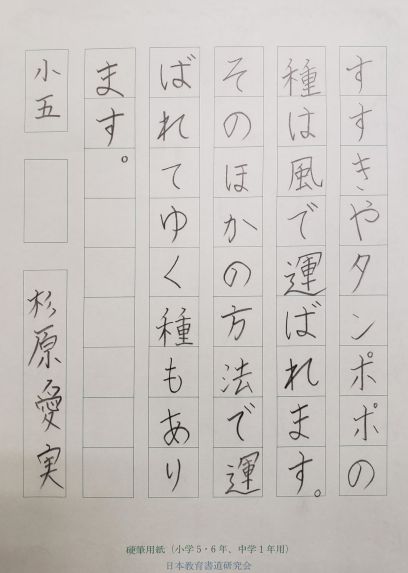 すすきやタンポポの
種は風で運ばれます。
そのほかの方法で運
ばれてゆく種もあり
ます。
小五
杉原愛実
硬筆用紙（小学5・6年、中学1年用）
日本教育書道研究会